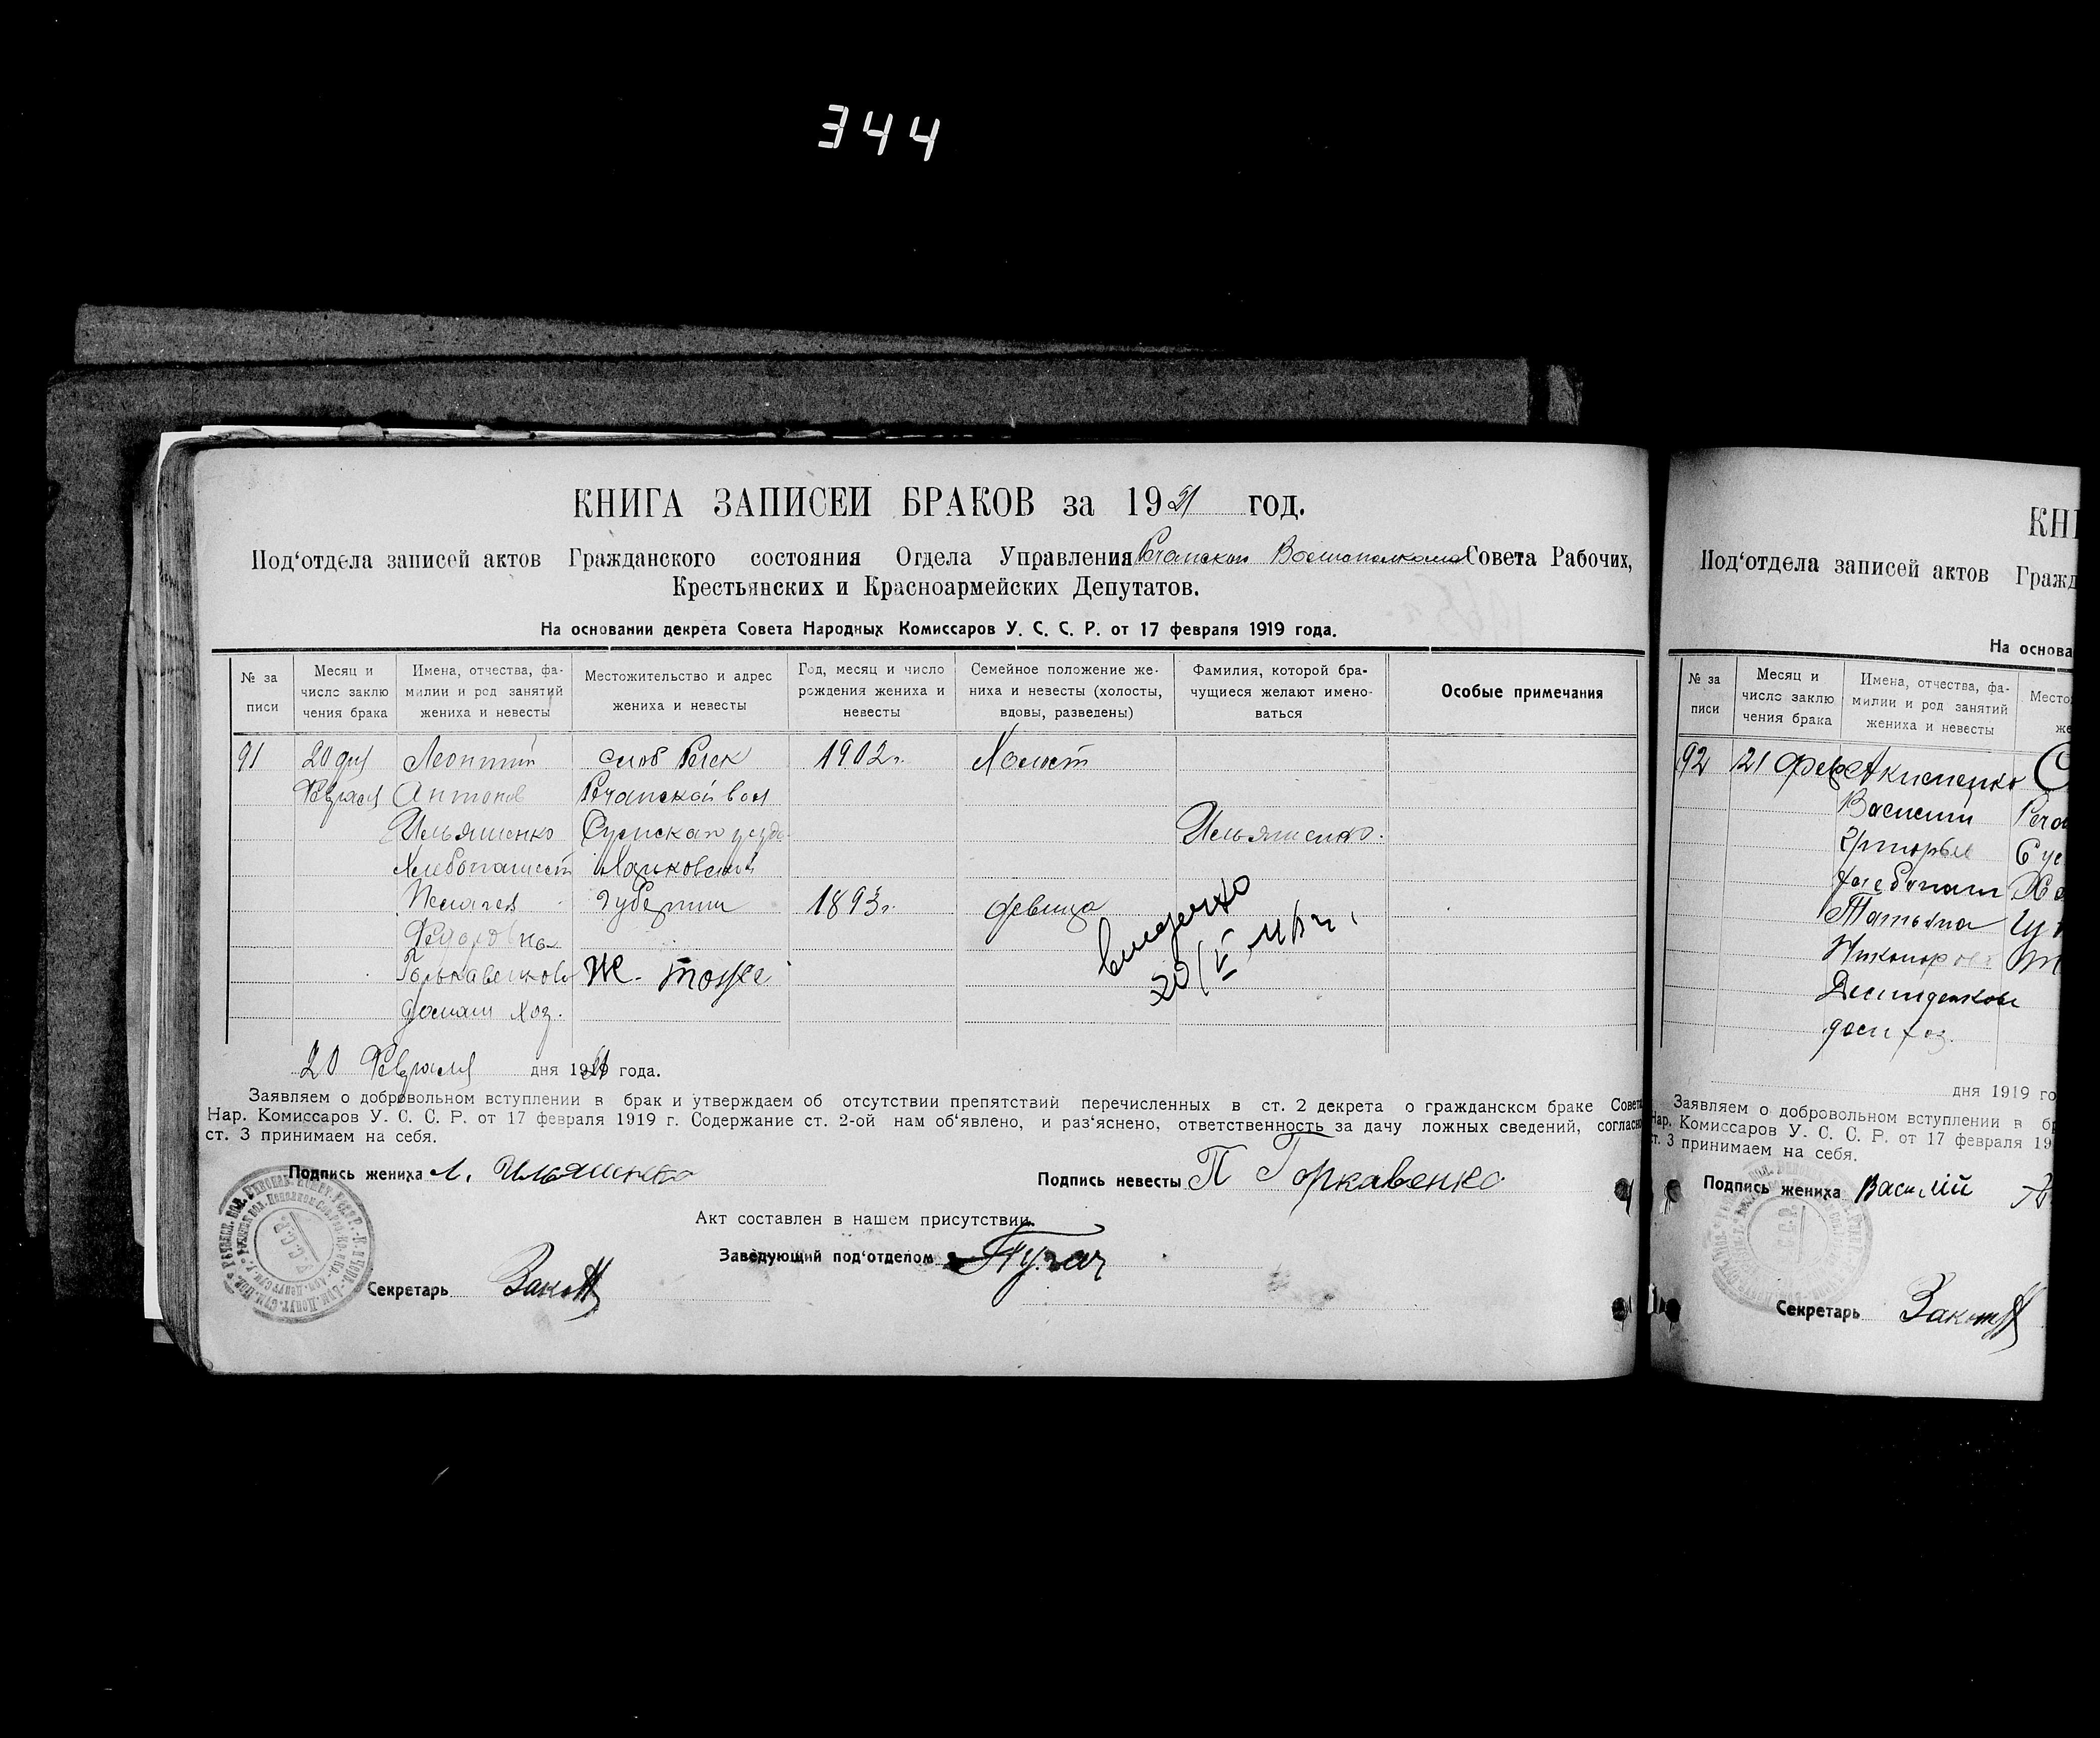 344
КНИГА ЗАПИСЕЙ БРАКОВ за 1921 год.
Под‘отдела записей актов Гражданского состояния Отдела Управления Совета Рабочих,
Крестьянских и Красноармейских Депутатов.
На основании декрета Совета Народных Комиссаров У. С. С. Р. от 17 февраля 1919 года.
№ за писи
Месяц и число заклю чения брака
Имена, отчества, фа- милии и род занятий жениха и невесты
Местожительство и адрес жениха и невесты
Год, месяц и число рождения жениха и невесты
Семейное положение же- ниха и невесты (холосты, вдовы, разведены)
Фамилия, которой бра- чущиеся желают имено- ваться
Особые примечания
91 20 дня Леонтий слоб 1902г. Холост
Февраля Антонов Речанской вол
Ильяшенко Сумского уезда Ильяшенко.
Хлебопашест Харьковской
Пелагея губернии 1893г. девица
Федоровна
Горькавенкова Ж. тоже
домаш хоз.
20 Февраля дня 1921 года.
Заявляем о добровольном вступлении в брак и утверждаем об отсутствии препятствий перечисленных в ст. 2 декрета о гражданском браке Совета
Нар. Комиссаров У. С. С. Р. от 17 февраля 1919 г. Содержание ст. 2-ой нам об‘явлено, и раз‘яснено, ответственность за дачу ложных сведений, согласно
ст. 3 принимаем на себя.
Подпись жениха Л. Ильяшенко
Подпись невесты П Горкавенко
Акт составлен в нашем присутствии.
Заведующий под‘отделом Пугач
Секретарь
КНИ
Под‘отдела записей актов Гражд
На основа
№ за писи
Месяц и число заклю чения брака
Имена, отчества, фа- милии и род занятий жениха и невесты
Место же
92 21 Фев Акименко С
Василий Реча
Сум
Ха
Татьяна
Никоноровна
домхоз.
дня 1919 го
Заявляем о добровольном вступлении в бр
Нар. Комиссаров У. С. С. Р. от 17 февраля 19
ст. 3 принимаем на себя.
Подпись жениха Василий А
Секретарь